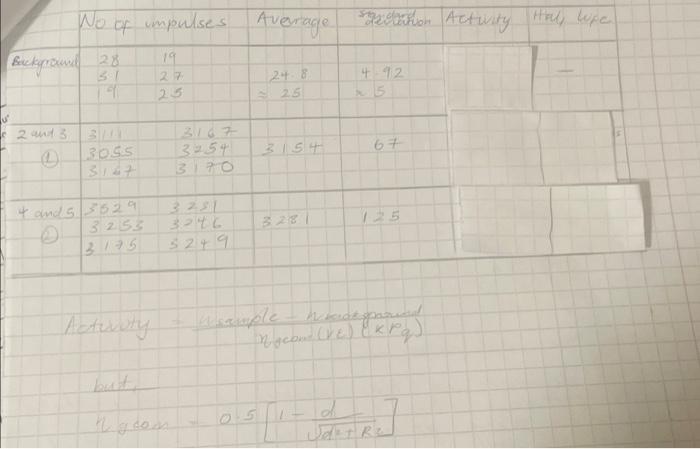 No of impulses Average Standard deviation Activity Half Life
Background 28 19
31 27 24.8 4.92
19 25 ≈ 25 ≈ 5
2 and 3 3111 3167
① 3055 3254 3154 67
3167 3170
4 and 5 3529 3231
② 3253 3246 3281 125
3175 3249
Activity = n sample - n background
n geom (
but,
n geom = 0.5 [1 - d
√d² + R²]